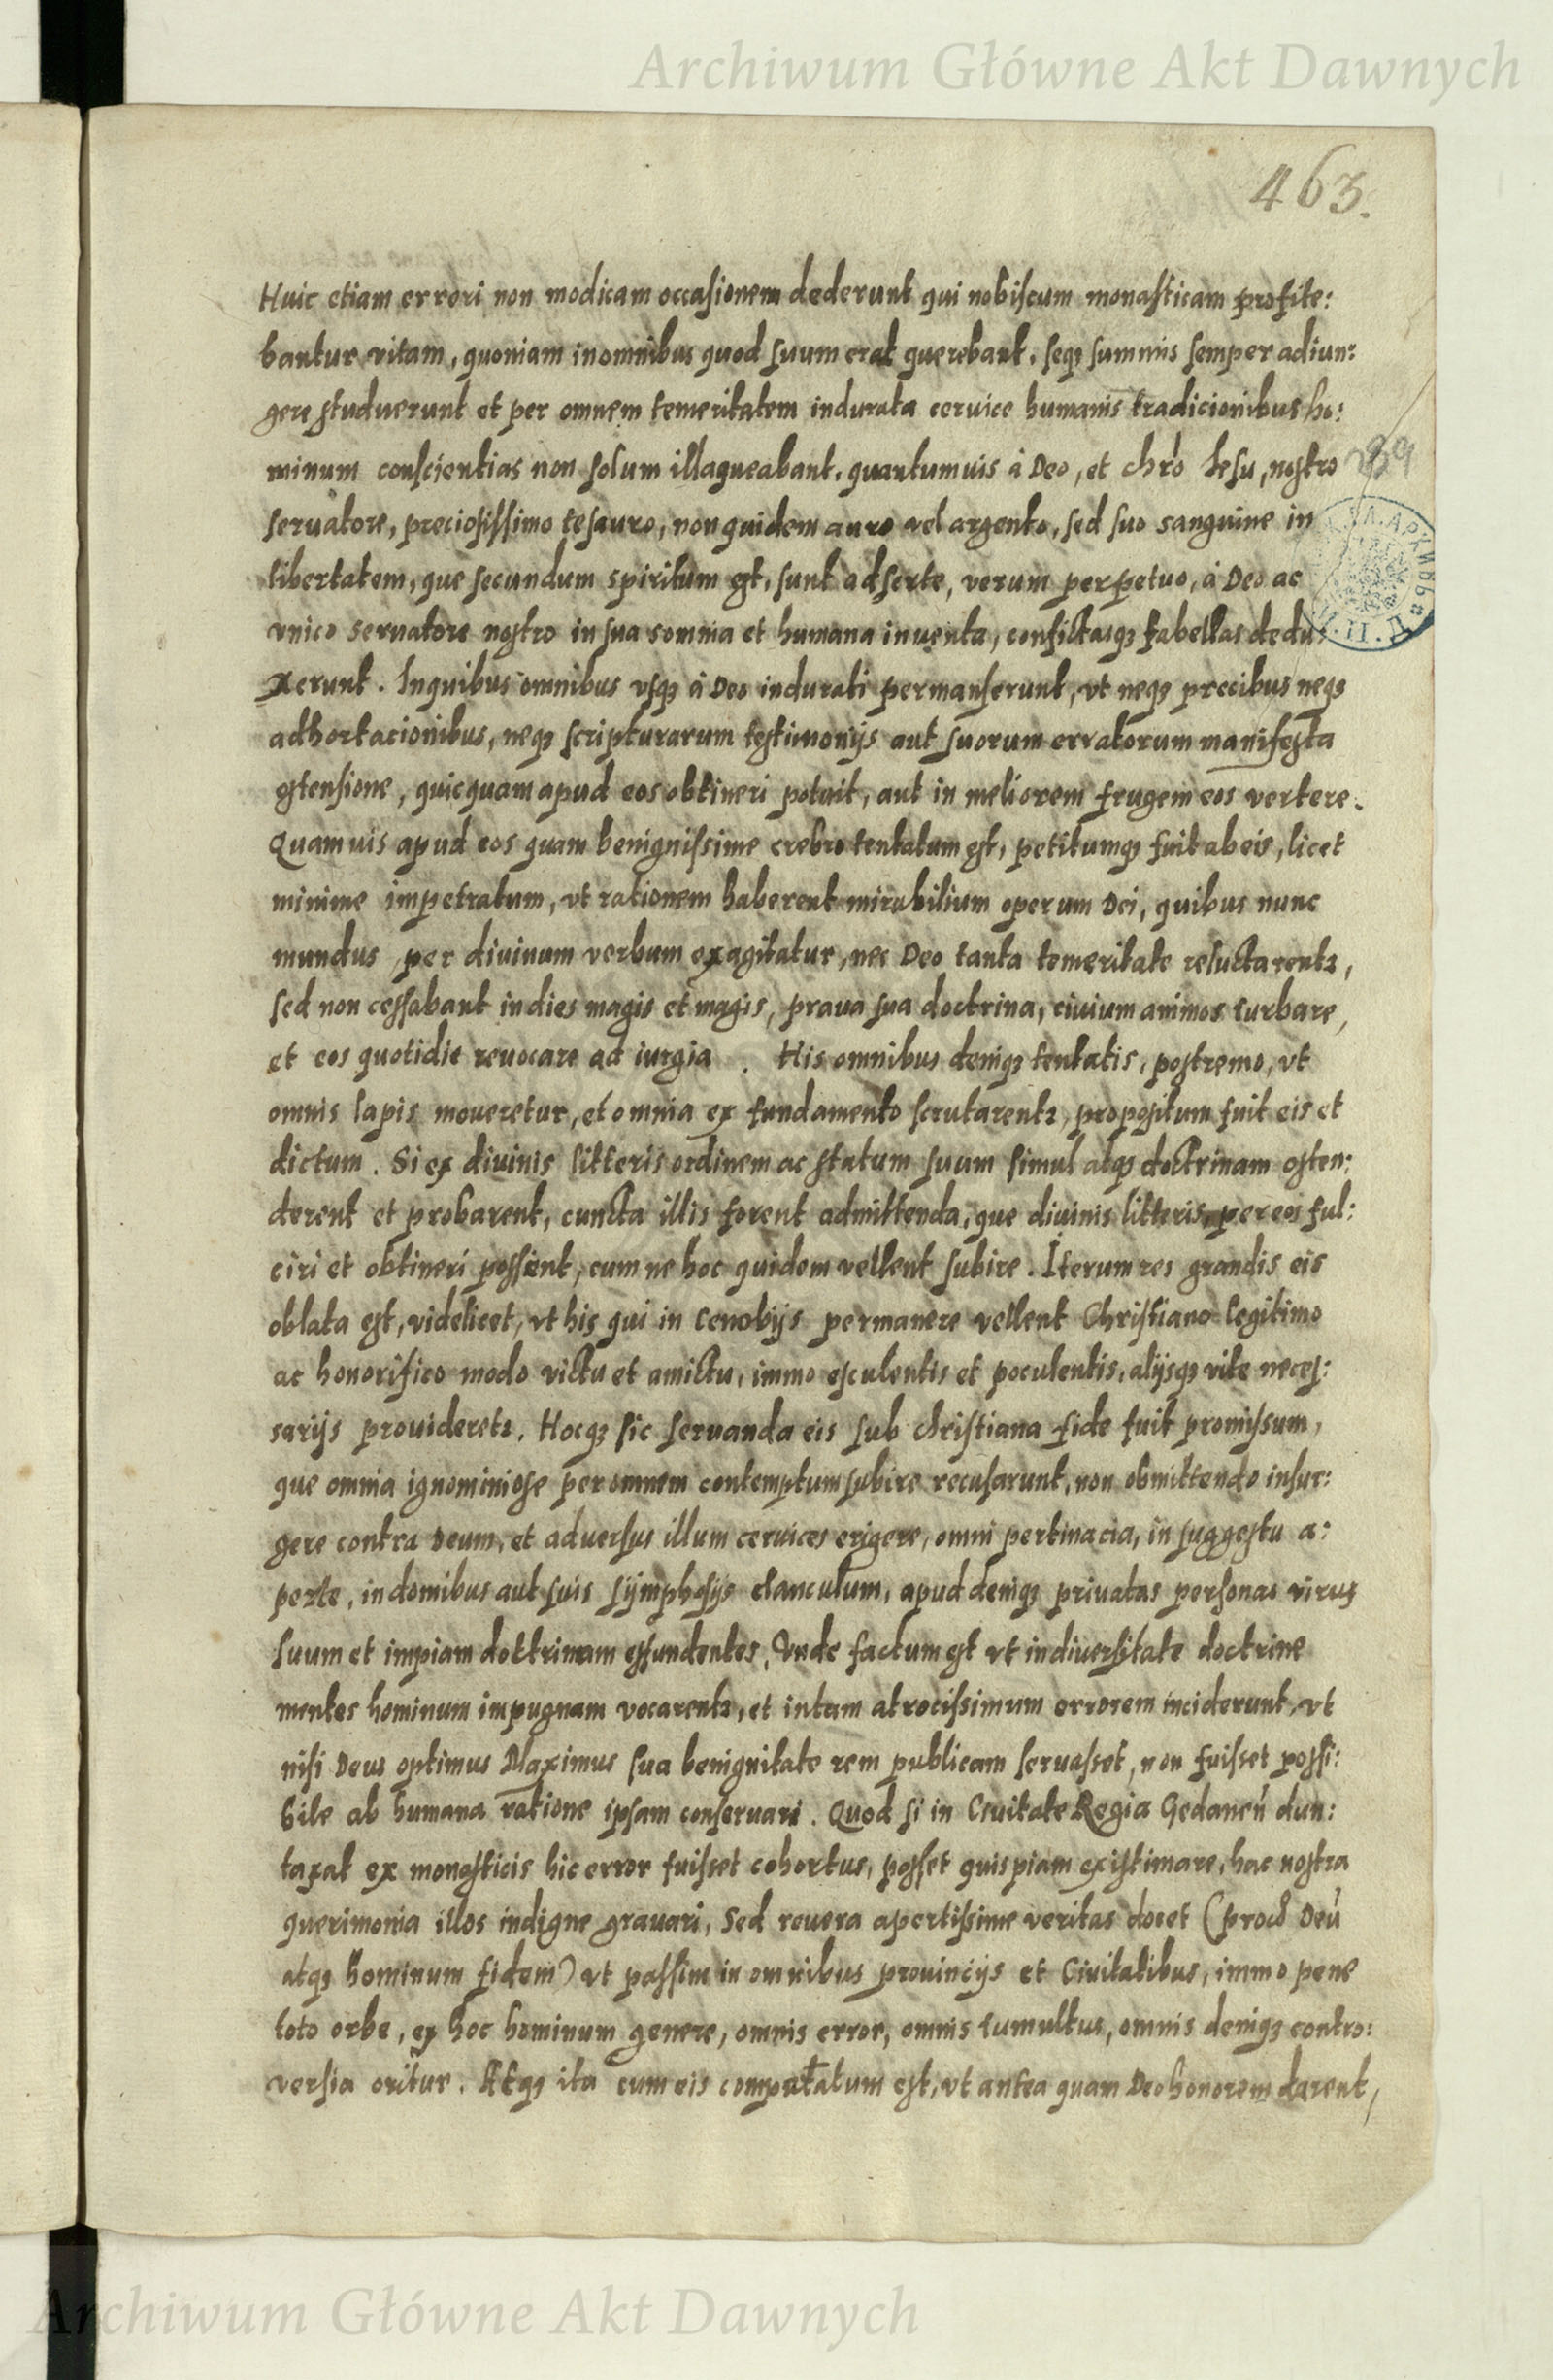 Archiwum Główne Akt Dawnych
463.
Huic etiam errori non modicam occasionem dederunt qui nobiscum monasticam profite:
bantur vitam, quoniam in omnibus quod suum erat querebant, seqꝫ summis semper adiun:
gere studuerunt et per omnem temeritatem indurata ceruice humanis tradicionibus ho:
minum conscientias non solum illaqueabant, quantumuis à Deo, et chr̄o Iesu, nostro
seruatore, preciosissimo tesauro, non quidem auro vel argento, sed suo sanguine in
libertatem, que secundum spiritum est, sunt adserte, verum perpetuo, à Deo ac
vnico seruatore nostro in sua somnia et humana inuenta, confictasqꝫ fabellas dedu:
xerunt. In quibus omnibus vsqꝫ à Deo indurati permanserunt, vt neqꝫ precibus neqꝫ
adhortacionibus, neqꝫ scripturarum testimonijs aut suorum erratorum manifesta
ostensione, quicquam apud eos obtineri potuit, aut in meliorem frugem eos vertere.
Quamuis apud eos quam benignissime crebro tentatum est, petitumqꝫ fuit ab eis, licet
minime impetratum, vt rationem haberent mirabilium operum Dei, quibus nunc
mundus per diuinum verbum exagitatur, nec Deo tanta temeritate reluctarentꝛ,
sed non cessabant indies magis et magis, praua sua doctrina, ciuium animos turbare,
et eos quotidie reuocare ad iurgia. His omnibus deniqꝫ tentatis, postremo, vt
omnis lapis moueretur, et omnia ex fundamento scrutarentꝛ, propositum fuit eis et
dictum. Si ex diuinis litteris ordinem ac statum suum simul atqꝫ doctrinam osten:
derent et probarent, cuncta illis forent admittenda, que diuinis litteris per eos ful:
ciri et obtineri possent, cum ne hoc quidem vellent subire. Iterum res grandis eis
oblata est, videlicet, vt his qui in Cenobijs permanere vellent Christiano legitimo
ac honorifico modo victu et amictu, immo esculentis et poculentis, alijsqꝫ vite neces:
sarijs prouideretꝛ. Hocqꝫ sic seruanda eis sub christiana fide fuit promissum,
que omnia ignominiose per omnem contemptum subire recusarunt, non obmittendo insur:
gere contra Deum, et aduersus illum ceruices erigere, omni pertinacia, in suggestu a:
perte, in domibus aut suis sijmphosijs clanculum, apud deniqꝫ priuatas personas virus
suum et impiam doctrinam effundentes, Vnde factum est vt in diuersitate doctrine
mentes hominum in pugnam vocarentꝛ, et in tam atrocissimum errorem inciderunt, vt
nisi Deus optimus Maximus sua benignitate rem publicam seruasset, non fuisset possi:
bile ab humana ratione ipsam conseruari. Quod si in Ciuitate Regia Gedanen̄ dun:
taxat ex monasticis hic error fuisset cohortus, posset quispiam existimare, hac nostra
querimonia illos indigne grauari, Sed reuera apertissime veritas docet (proch Deū
atqꝫ hominum fidem) vt passim in omnibus prouincijs et Ciuitatibus, immo pene
toto orbe, ex hoc hominum genere, omnis error, omnis tumultus, omnis deniqꝫ contro:
versia oritur. Atqꝫ ita cum eis computatum est, vt antea quam Deo honorem darent,
Archiwum Główne Akt Dawnych